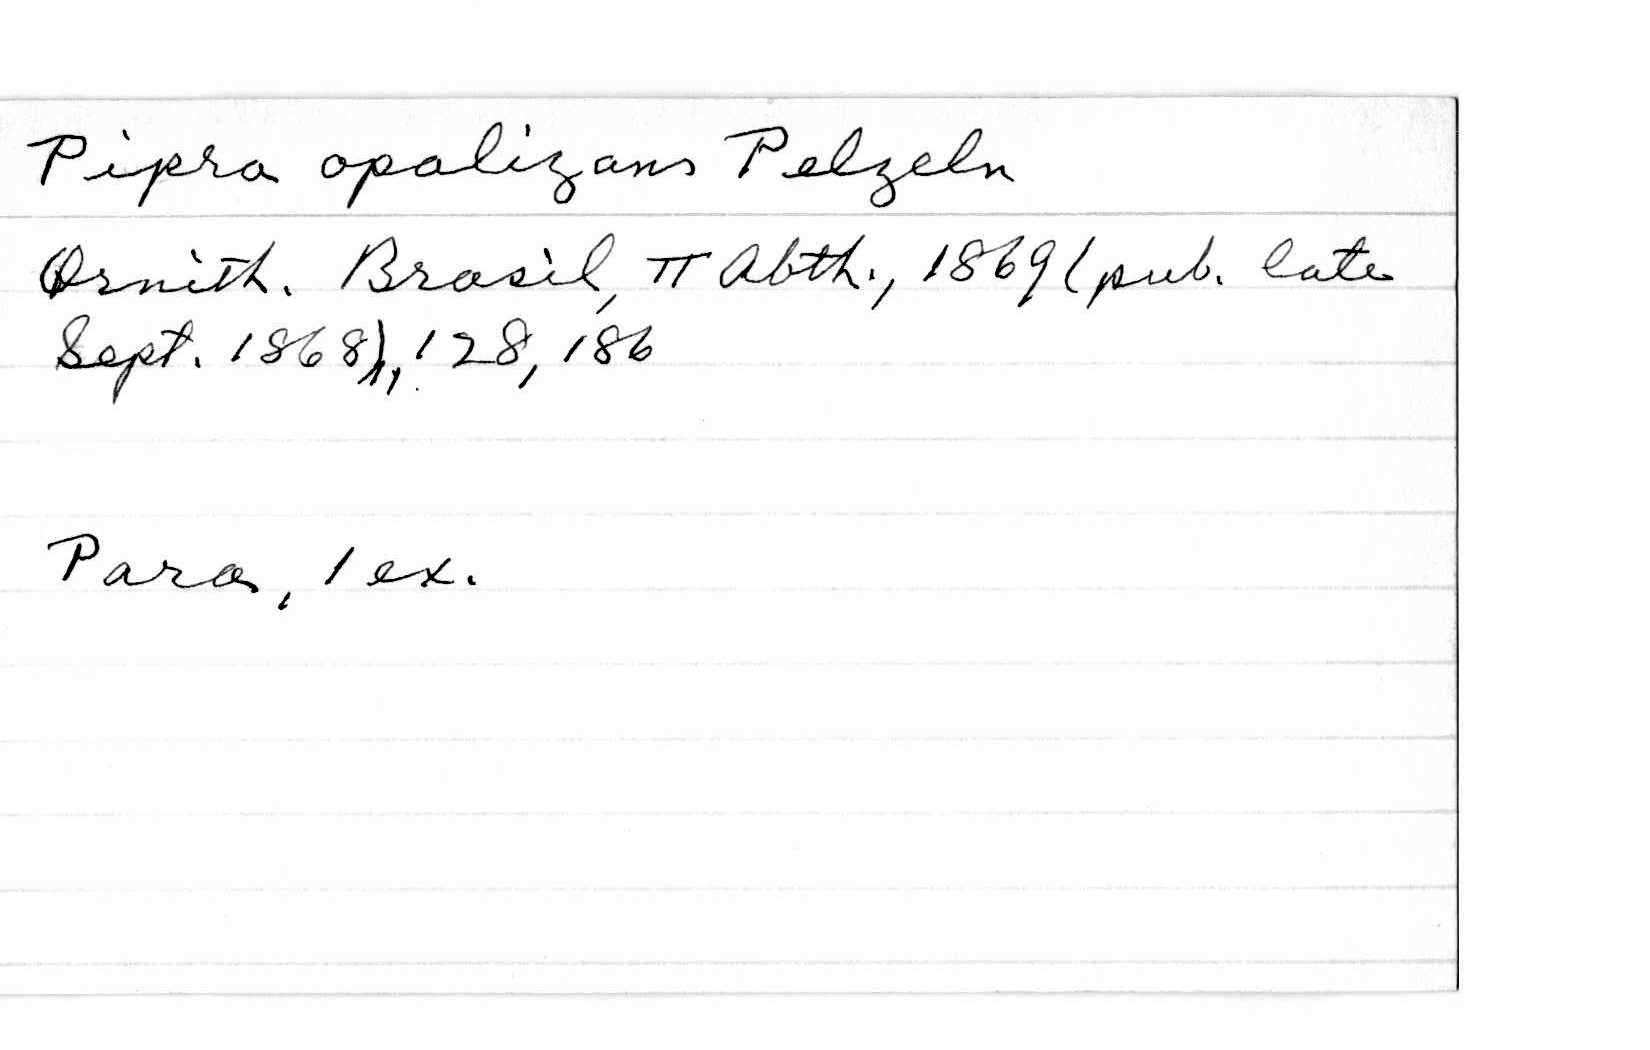 Pipra opalizans Pelzeln
Ornith. Brasil, II Abth., 1869 (pub. late
Sept. 1868), 128, 186
Para, 1 ex.